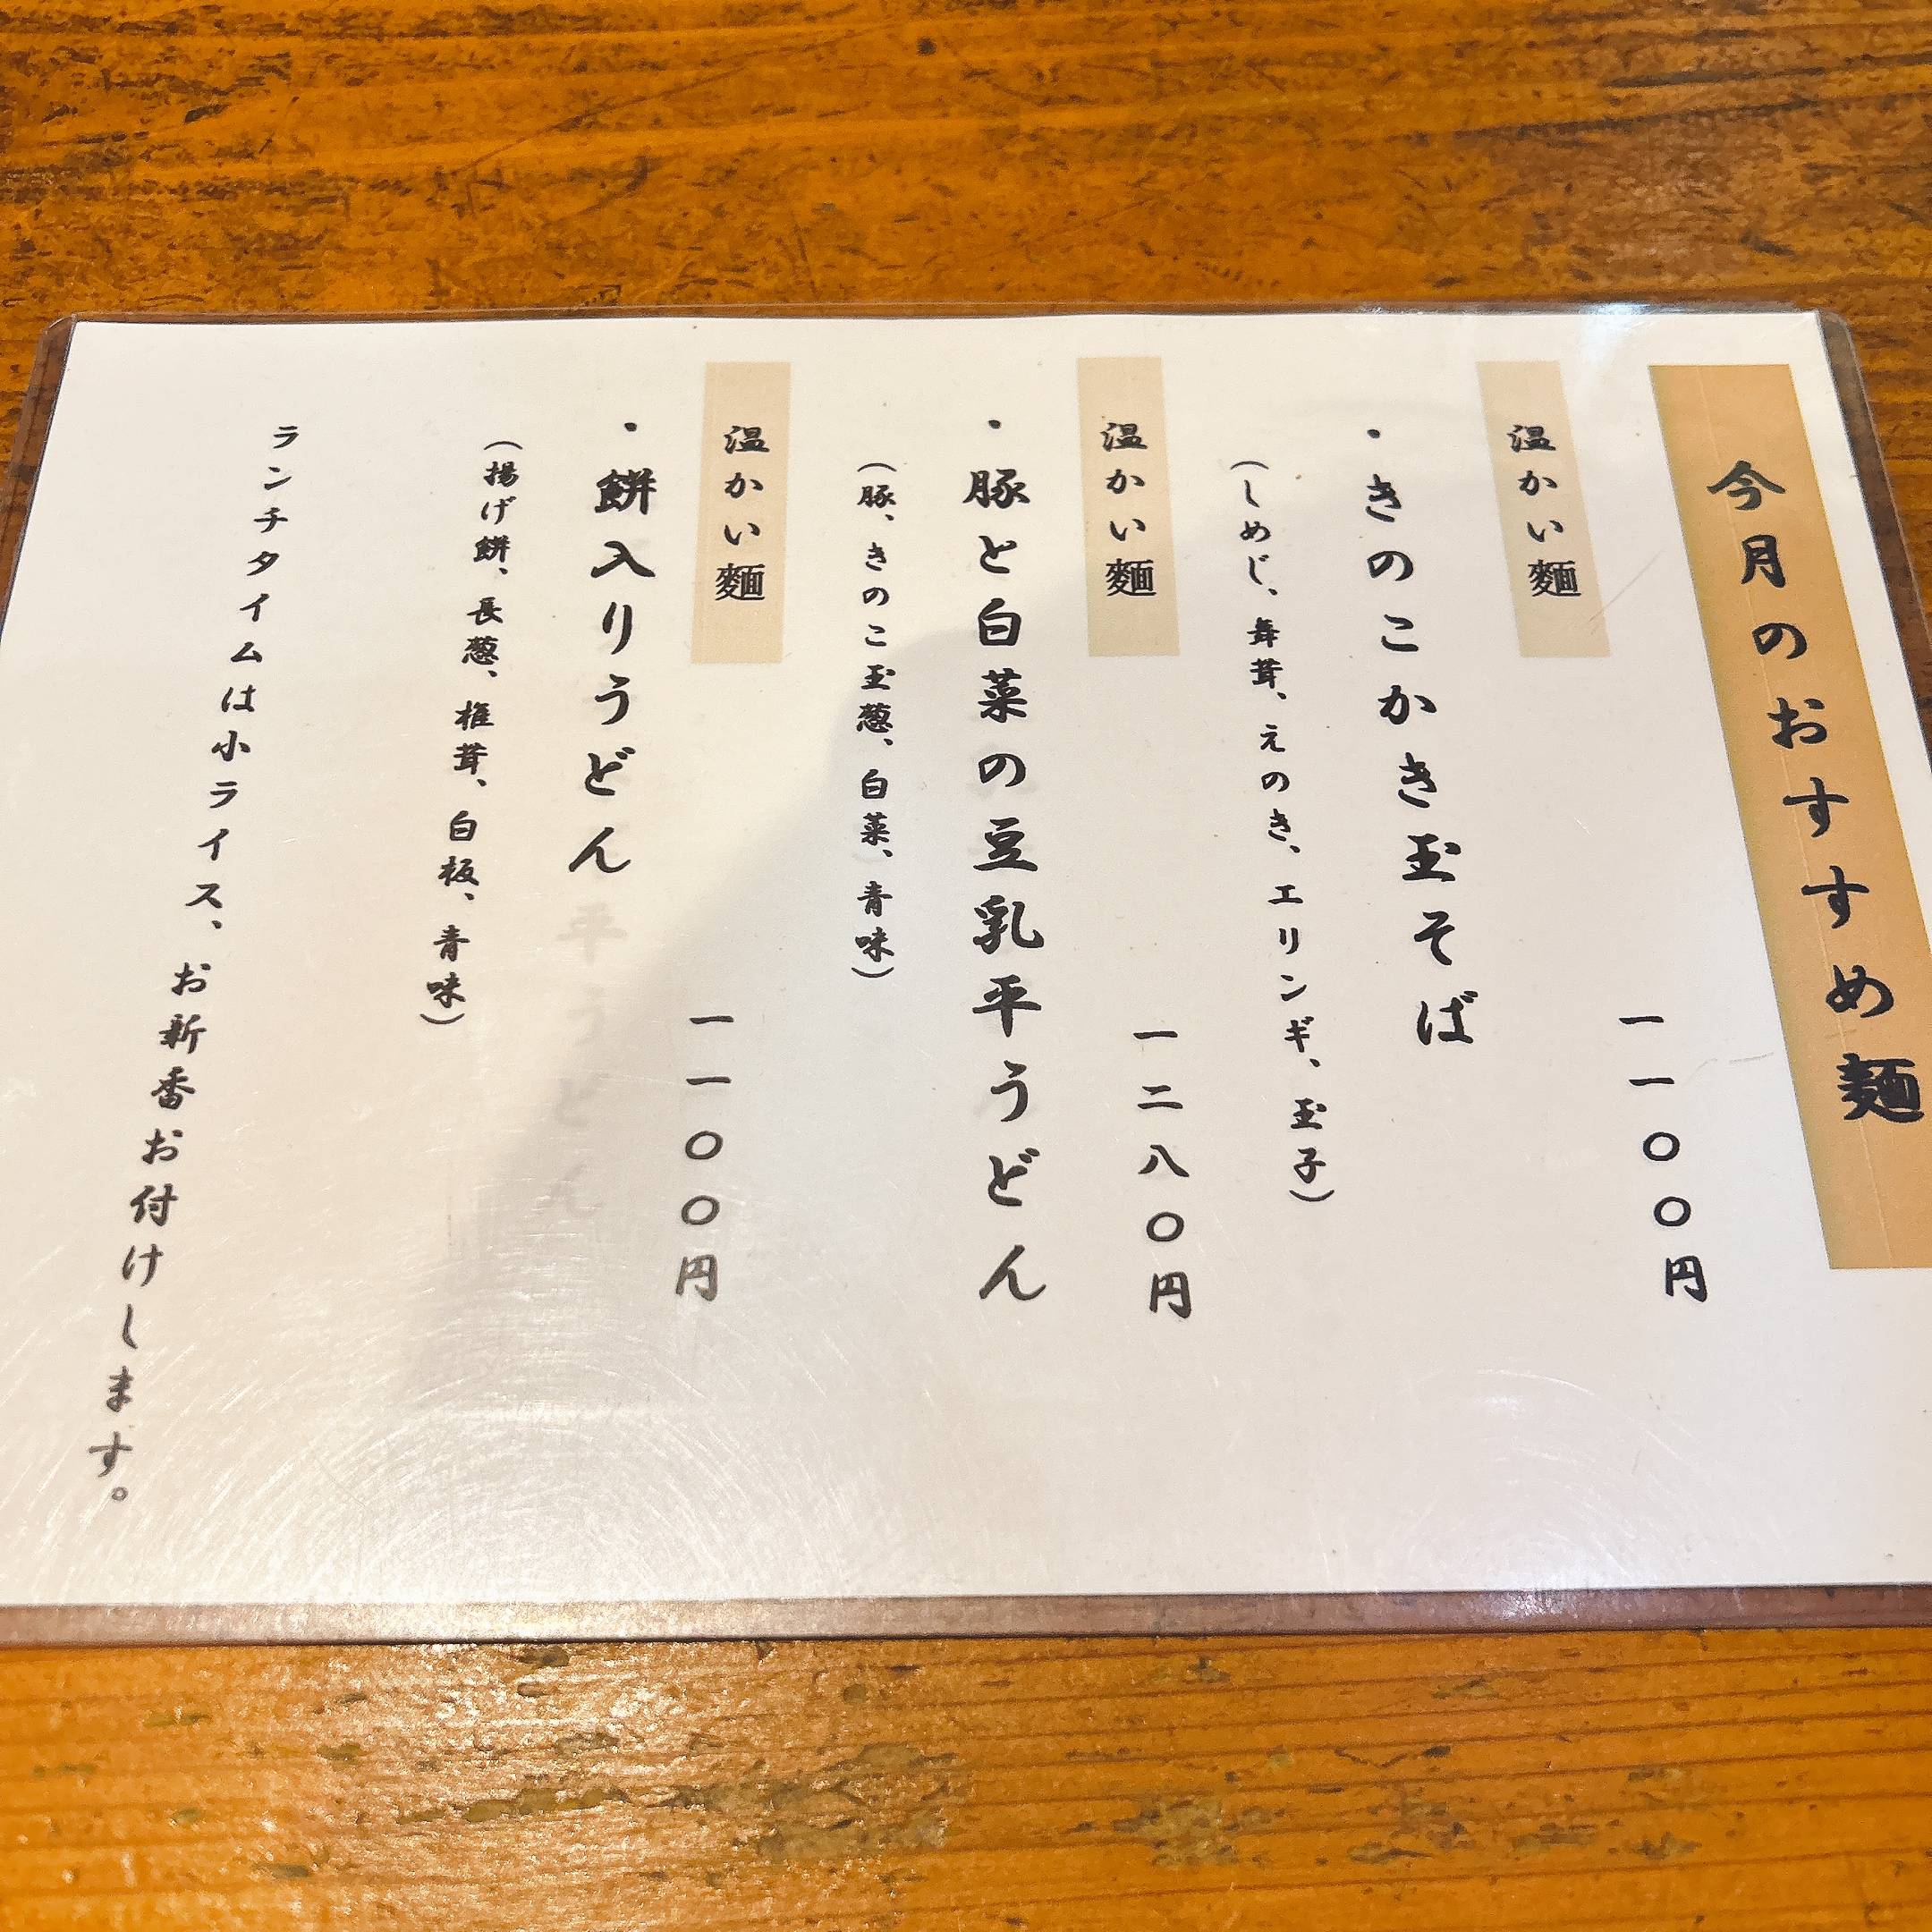 今月のおすすめ麺
温かい麺
一一〇〇円
・きのこかき玉そば
（しめじ、舞茸、えのき、エリンギ、玉子）
温かい麺
一二八〇円
・豚と白菜の豆乳平うどん
（豚、きのこ玉葱、白菜、青味）
温かい麺
一一〇〇円
・餅入りうどん
（揚げ餅、長葱、椎茸、白板、青味）
ランチタイムは小ライス、お新香お付けします。